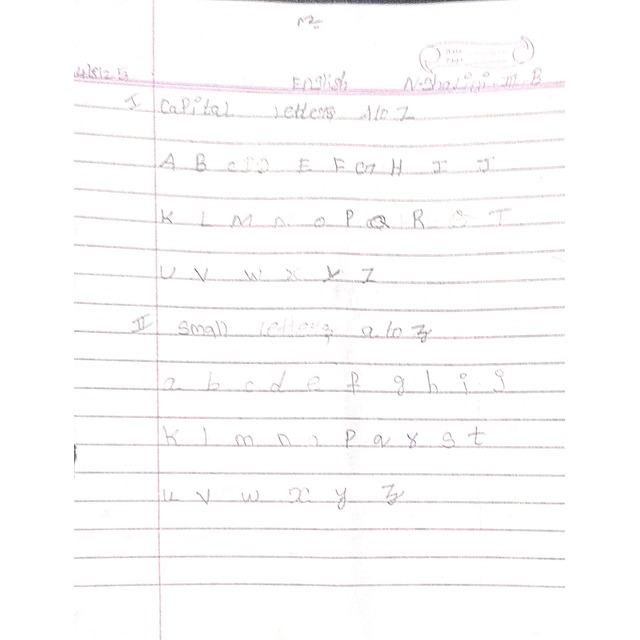 English
I Capital letters A to Z
A B C D E F G H I J
K L M n o P Q R S T
U V W X Y Z
II Small letters a to z
a b c d e f g h i j
k l m n o p q r s t
u v w x y z